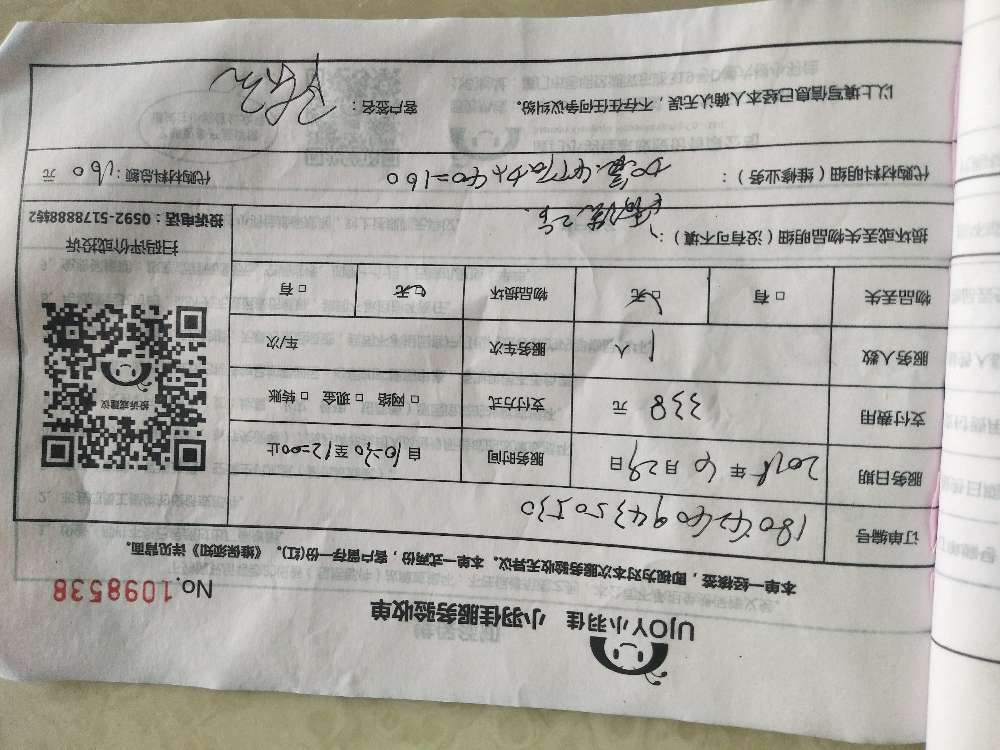 UJOY小羽佳 小羽佳服务验收单
No.1098538
本单一经核签，即视为对本次服务验收无异议。本单一式两份，客户留存一份(红)。《维保须知》详见背面。
订单编号
服务日期 2018 年 6 月 29 日 服务时间 自 10-30 至 12=00 止
支付费用 338 元 支付方式 □ 网络 □ 现金 □ 转账
服务人数 1 人 服务车次 车/次
物品丢失 □ 有 □ 无 物品损坏 □ 无 □ 有
投诉或建议
扫码评价或投诉
投诉电话：0592-5178888转2
损坏或丢失物品明细（没有可不填）：
代购材料明细（维修业务）： 加氟 4个压力×40=160 代购材料总额：160 元
以上填写信息已经本人确认无误，不存在任何争议纠纷。 客户签名：